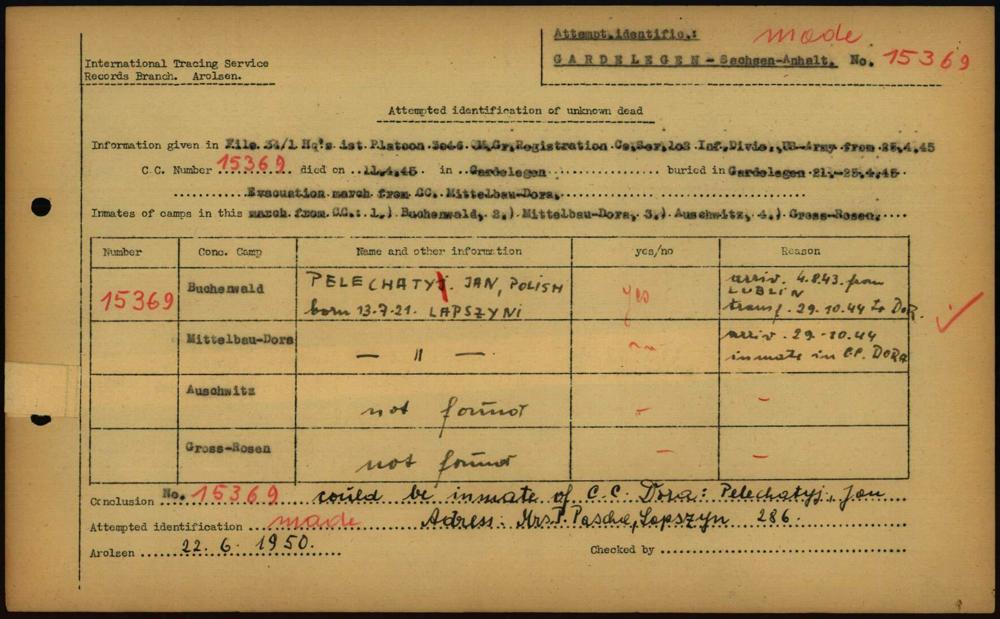 Attempt.identific.: made
GARDELEGEN - Sachsen-Anhalt. No. 15369
International Tracing Service
Records Branch. Arolsen.
Attempted identification of unknown dead
Information given in File 34/1 Hq's 1st Platoon 3046 QM.Gr.Registration Co,Ser,102 Inf.Divis.,US-Army from 25.4.45
C.C. Number 15369 died on 11.4.45 in Gardelegen buried in Gardelegen 21.-25.4.45
Evacuation march from CC. Mittelbau-Dora,
Inmates of camps in this march from CC.: 1.) Buchenwald, 2.) Mittelbau-Dora, 3.) Auschwitz, 4.) Gross-Rosen.
Number Conc. Camp Name and other information yes/no Reason
15369 Buchenwald PELECHATYJ. JAN, POLISH
born 13.7.21. LAPSZYNI yes arriv. 4.8.43 from
LUBLIN
transf. 29.10.44 to DOR.
Mittelbau-Dora — " — arriv. 29.10.44
inmate in CC. DORA
Auschwitz not found - -
Gross-Rosen not found - -
Conclusion No. 15369 could be inmate of C.C. Dora: Pelechatyj, Jan
Attempted identification made Adress: Mrs. P. Pascha, Lopszyn 286.
Arolsen 22.6.1950. Checked by